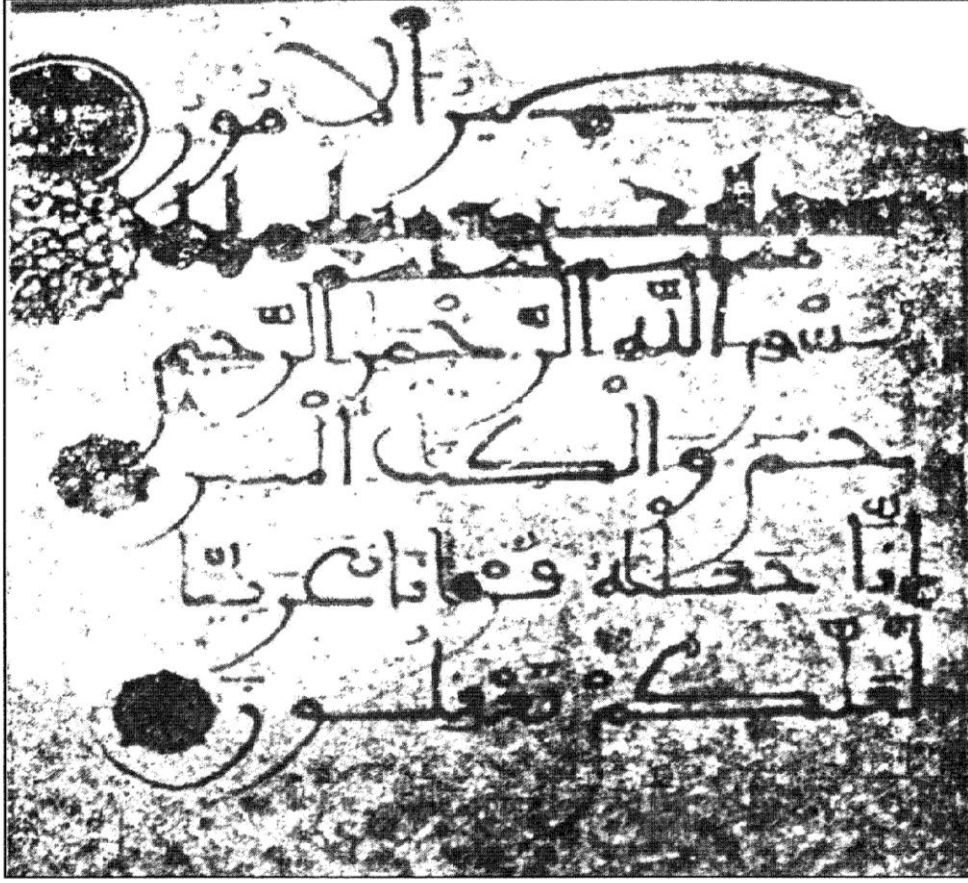 تصير الامور
بسم الله الرحمن الرحيم
حم والكتب المبين
إنا جعلنه قرانا عربيا
لعلكم تعقلون